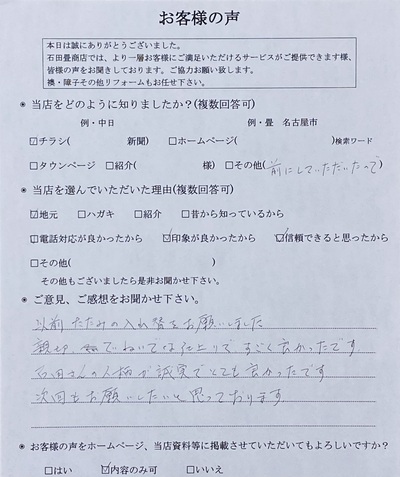 お客様の声
本日は誠にありがとうございました。
石田畳商店では、より一層お客様にご満足いただけるサービスがご提供できます様、
皆様の声をお聞きしております。ご協力お願い致します。
襖・障子その他リフォームもお任せ下さい。
◉ 当店をどのように知りましたか?(複数回答可)
例・中日 例・畳 名古屋市
☑チラシ( 新聞) □ホームページ( )検索ワード
□タウンページ □紹介( 様) □その他(前にしていただいたので)
◉ 当店を選んでいただいた理由(複数回答可)
☑地元 □ハガキ □紹介 □昔から知っているから
☑電話対応が良かったから ☑印象が良かったから ☑信頼できると思ったから
□その他( )
その他もございましたら是非お聞かせ下さい。
◉ ご意見、ご感想をお聞かせ下さい。
以前たたみの入れ替をお願いしました
親切、ていねいで仕上りですごく良かったです
石田さんの人柄が誠実でとても良かったです
次回もお願いしたいと思っております。
◉ お客様の声をホームページ、当店資料等に掲載させていただいてもよろしいですか?
□はい ☑内容のみ可 □いいえ